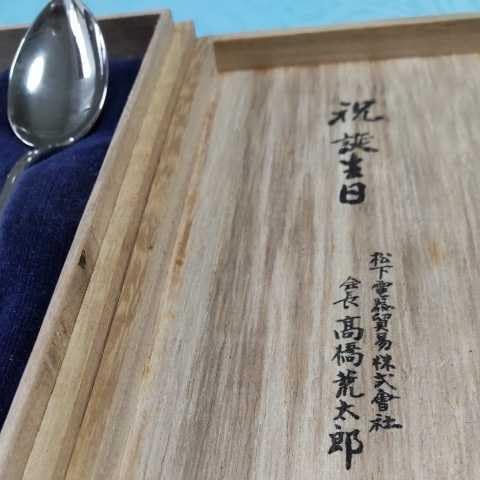 祝誕生日
松下電器貿易株式會社
会長 髙橋荒太郎